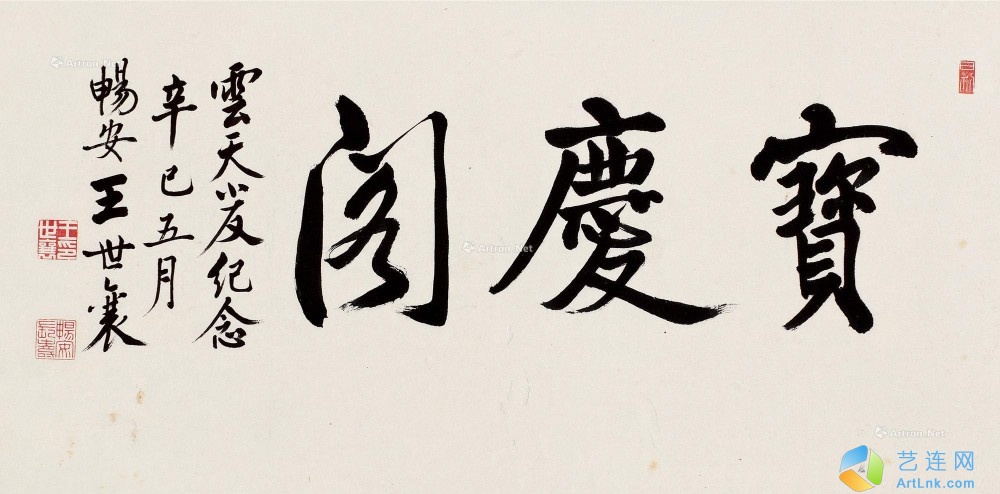 寶慶閣
雲天小友紀念
辛巳五月
暢安王世襄
王世襄印
暢安長壽
Artron.Net
Artron.Net
Artron.Net
艺连网
ArtLnk.com